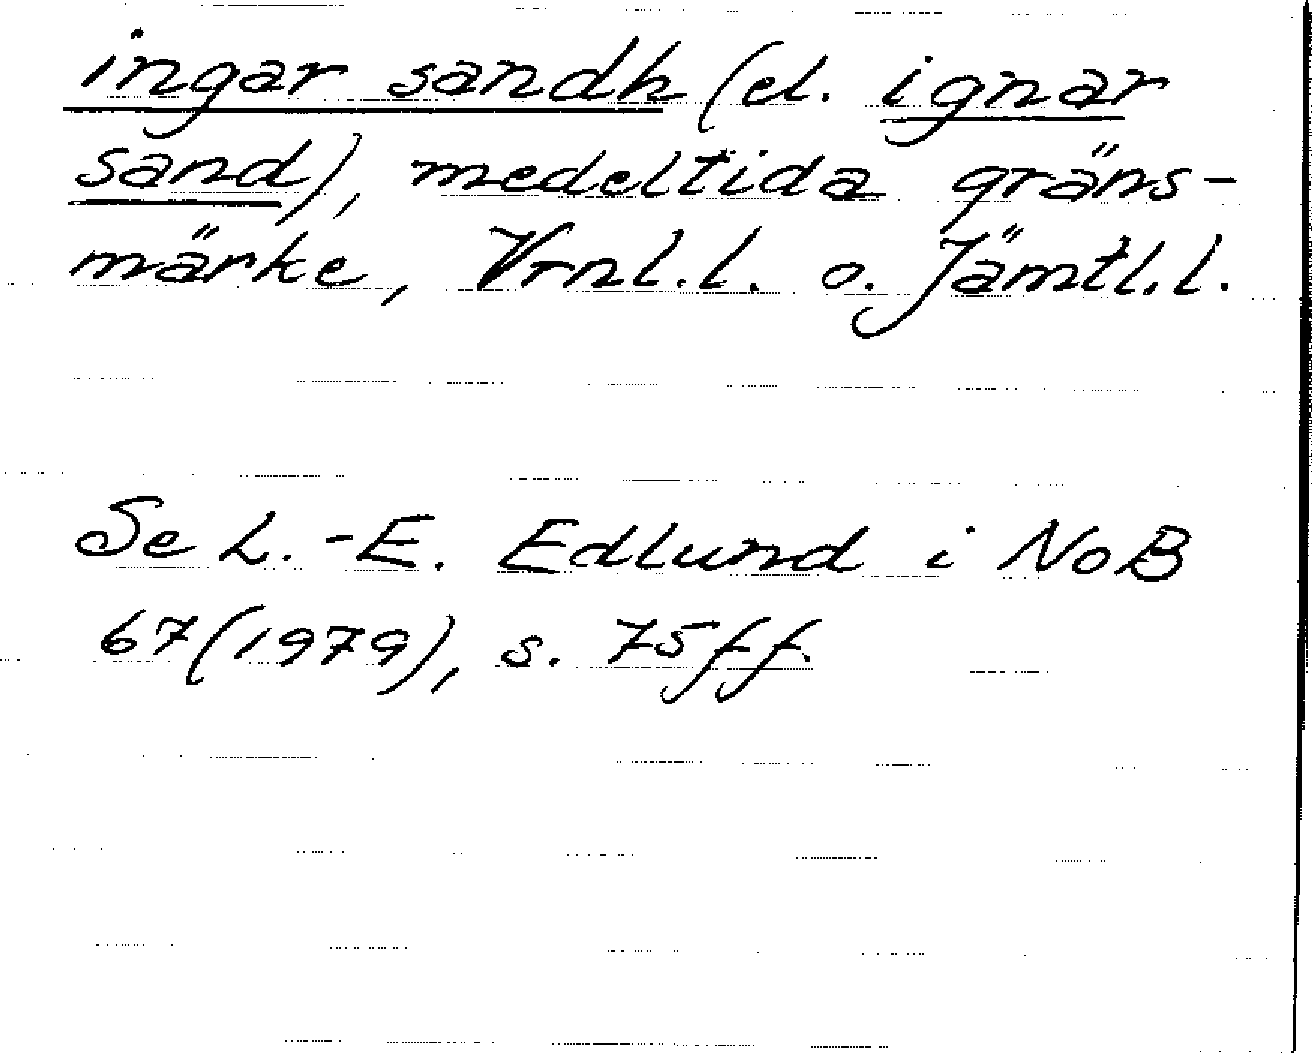 ingar sandh (el. ignar
sand), medeltida gräns-
märke, Vrnl.l. o. Jämtl.l.
Se L.-E. Edlund i NoB
67(1979), s. 75ff.